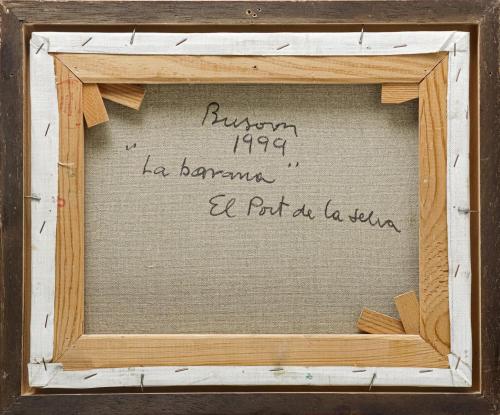 Busom
1999
"La barana"
El Port de la selva